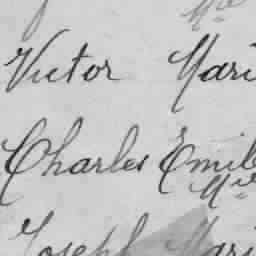 Mie
Victor Mari
Charles Emil
Mie
Joseph Mari